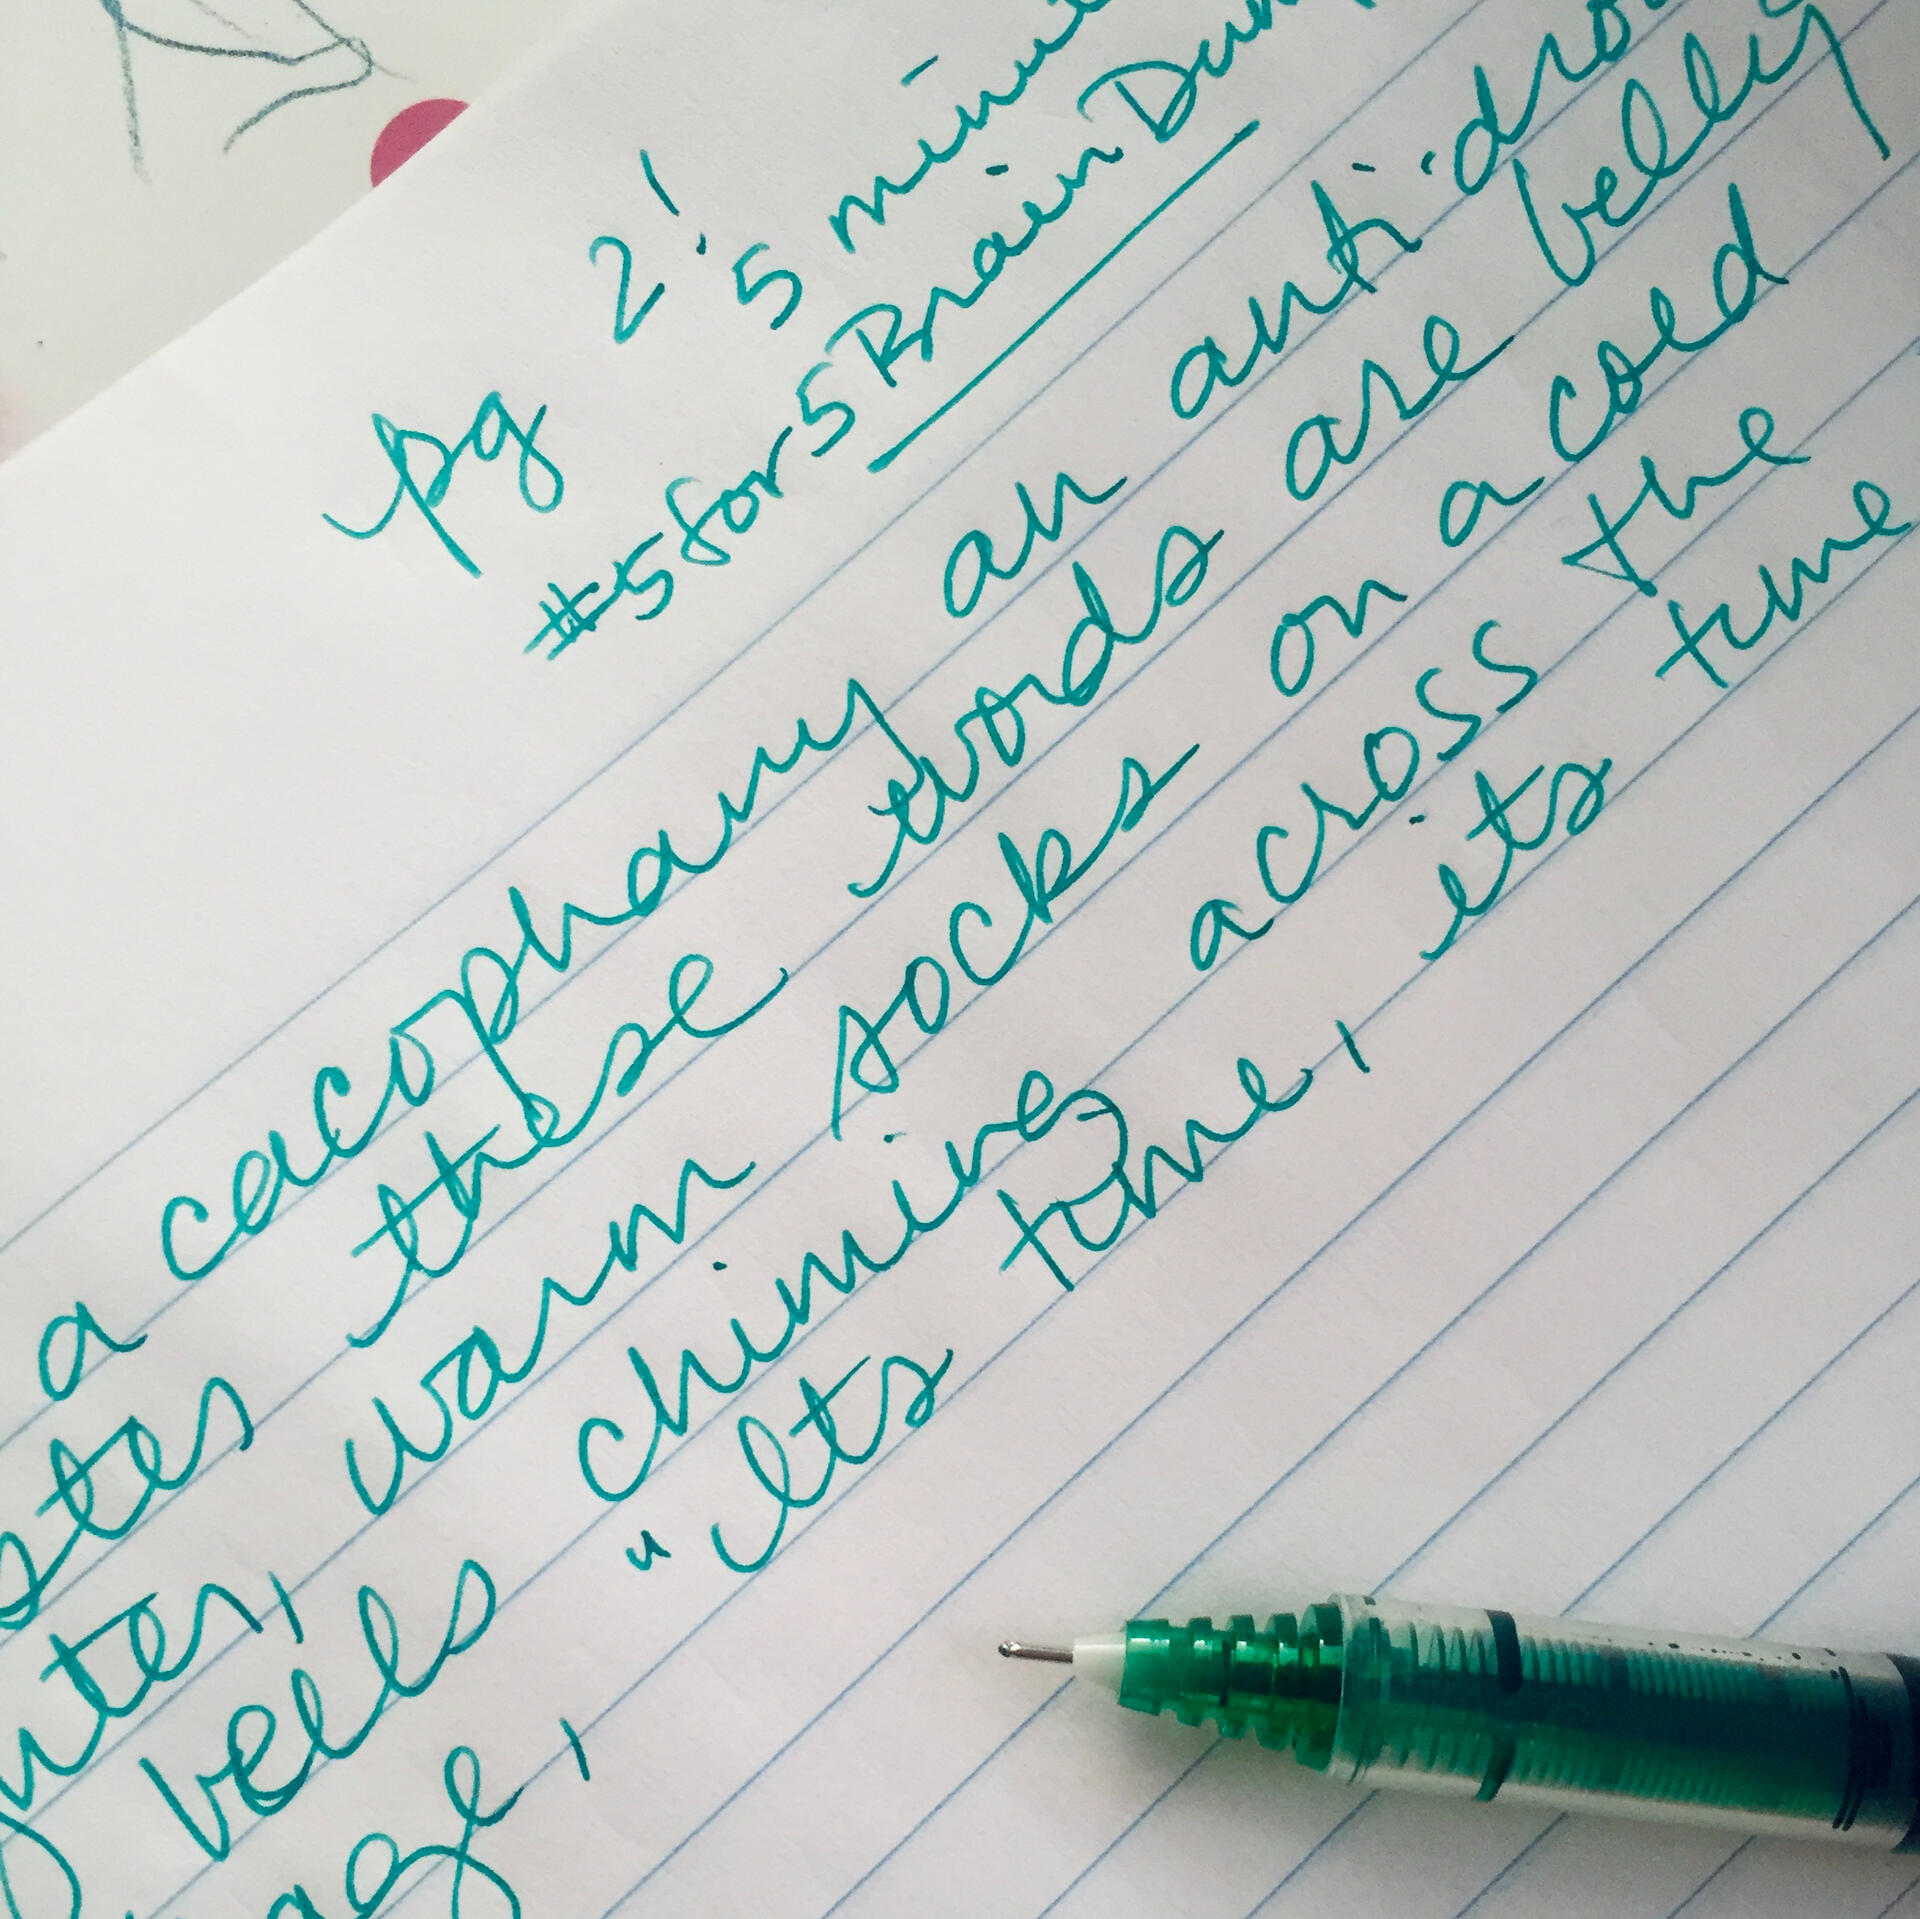 pg 2! 5 minu
#5for5BrainDum
a cacophany an anti-dro
stes these words are belly
warm socks on a cold
bells chiming across the
age, "Its time, its time